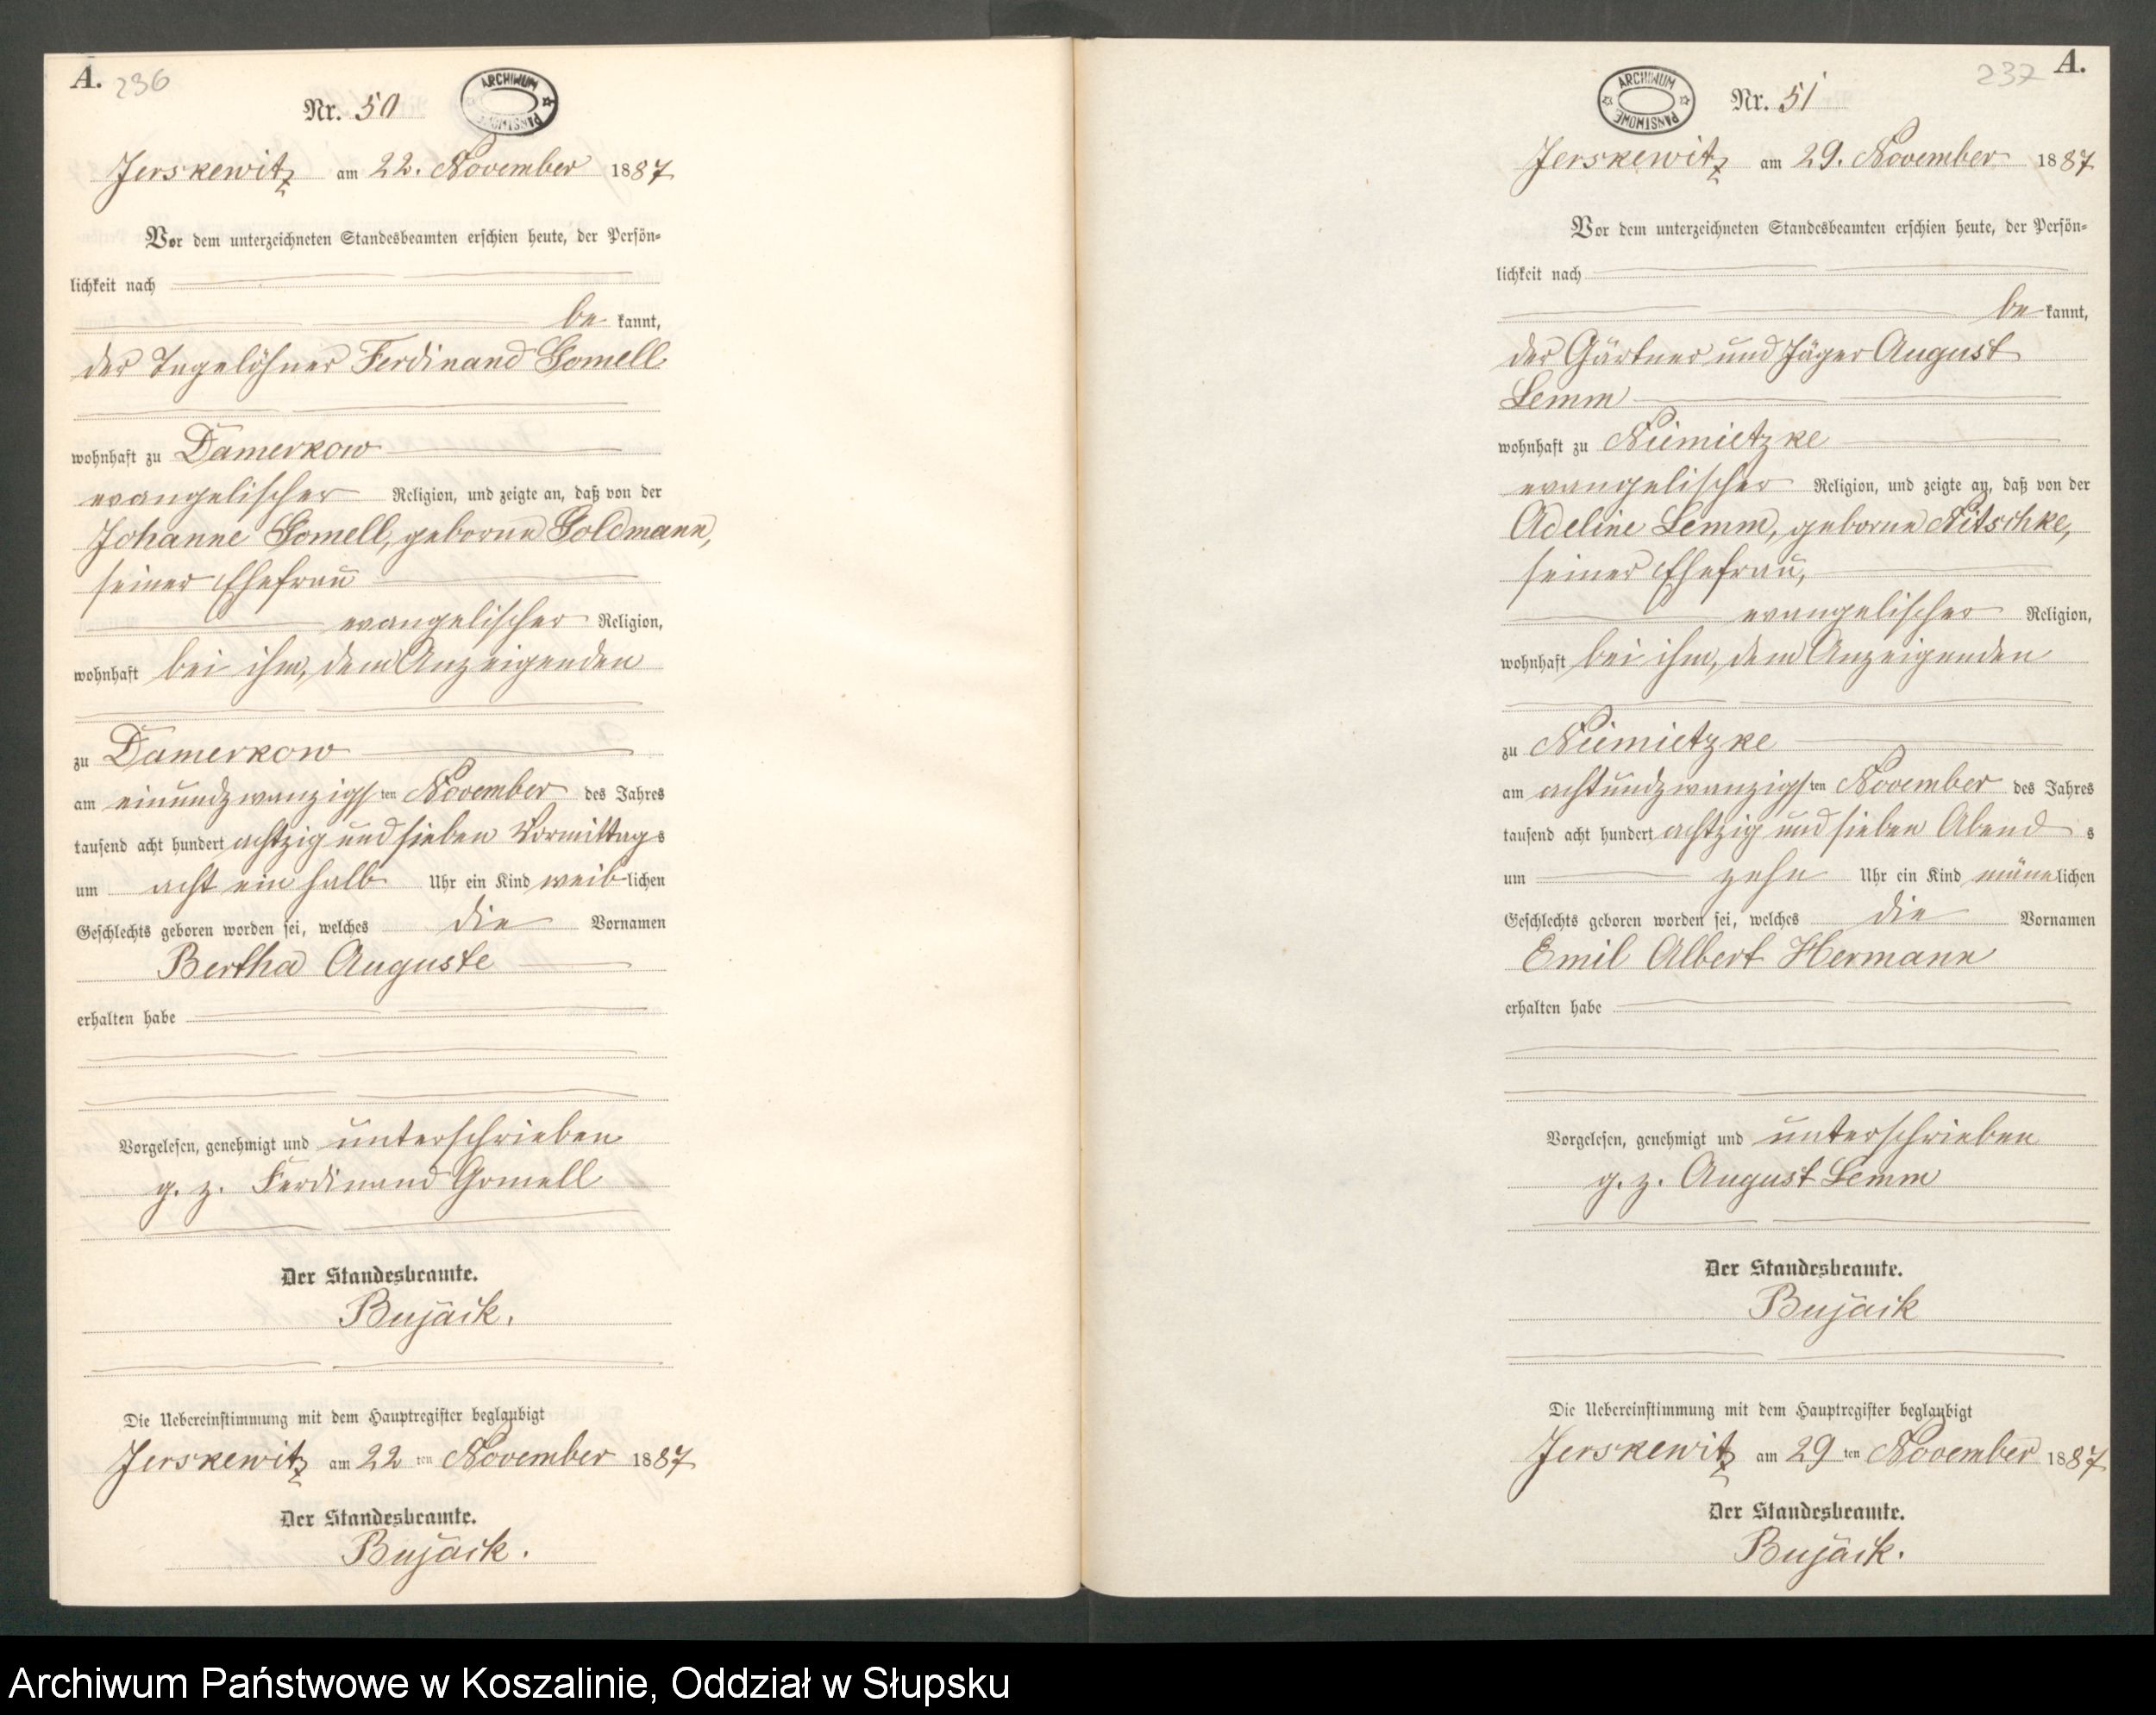 A. 236
Nr. 50
ARCHIWUM PAŃSTWOWE
Jerskewitz am 22. November 1887
Vor dem unterzeichneten Standesbeamten erschien heute, der Persön=
lichkeit nach
be kannt,
der Tagelöhner Ferdinand Gomell
wohnhaft zu Damerkow
evangelischer Religion, und zeigte an, daß von der
Johanne Gomell, geborne Goldmann,
seiner Ehefrau
evangelischer Religion,
wohnhaft bei ihm, dem Anzeigenden
zu Damerkow
am einundzwanzigsten November des Jahres
tausend acht hundert achtzig und sieben Vormittags
um acht ein halb Uhr ein Kind weiblichen
Geschlechts geboren worden sei, welches die Vornamen
Bertha Auguste
erhalten habe
Vorgelesen, genehmigt und unterschrieben
g. z. Ferdinand Gomell
Der Standesbeamte.
Bujack.
Die Uebereinstimmung mit dem Hauptregister beglaubigt
Jerskewitz am 22 ten November 1887
Der Standesbeamte.
Bujack.
237 A.
ARCHIWUM PAŃSTWOWE
Nr. 51
Jerskewitz am 29. November 1887
Vor dem unterzeichneten Standesbeamten erschien heute, der Persön=
lichkeit nach
be kannt,
der Gärtner und Jäger August
Lemm
wohnhaft zu Nimietzke
evangelischer Religion, und zeigte an, daß von der
Adeline Lemm, geborne Nitschke,
seiner Ehefrau,
evangelischer Religion,
wohnhaft bei ihm, dem Anzeigenden
zu Nimietzke
am achtundzwanzigsten November des Jahres
tausend acht hundert achtzig und sieben Abend s
um zehn Uhr ein Kind männlichen
Geschlechts geboren worden sei, welches die Vornamen
Emil Albert Hermann
erhalten habe
Vorgelesen, genehmigt und unterschrieben
g. z. August Lemm
Der Standesbeamte.
Bujack
Die Uebereinstimmung mit dem Hauptregister beglaubigt
Jerskewitz am 29 ten November 1887
Der Standesbeamte.
Bujack.
Archiwum Państwowe w Koszalinie, Oddział w Słupsku